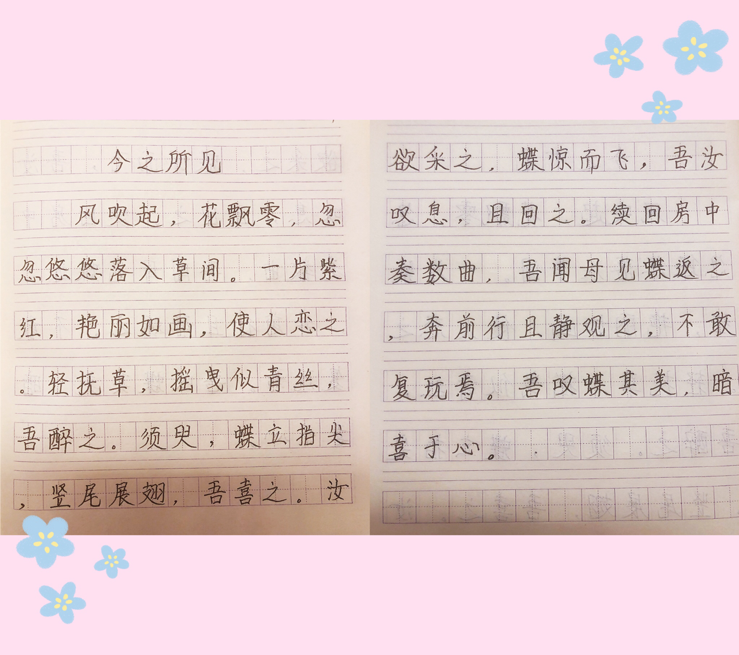 今之所见
风吹起，花飘零，忽
忽悠悠落入草间。一片紫
红，艳丽如画，使人恋之
。轻抚草，摇曳似青丝，
吾醉之。须臾，蝶立指尖
，竖尾展翅，吾喜之。汝
欲采之，蝶惊而飞，吾汝
叹息，且回之。续回房中
奏数曲，吾闻母见蝶返之
，奔前行且静观之，不敢
复玩焉。吾叹蝶其美，暗
喜于心。